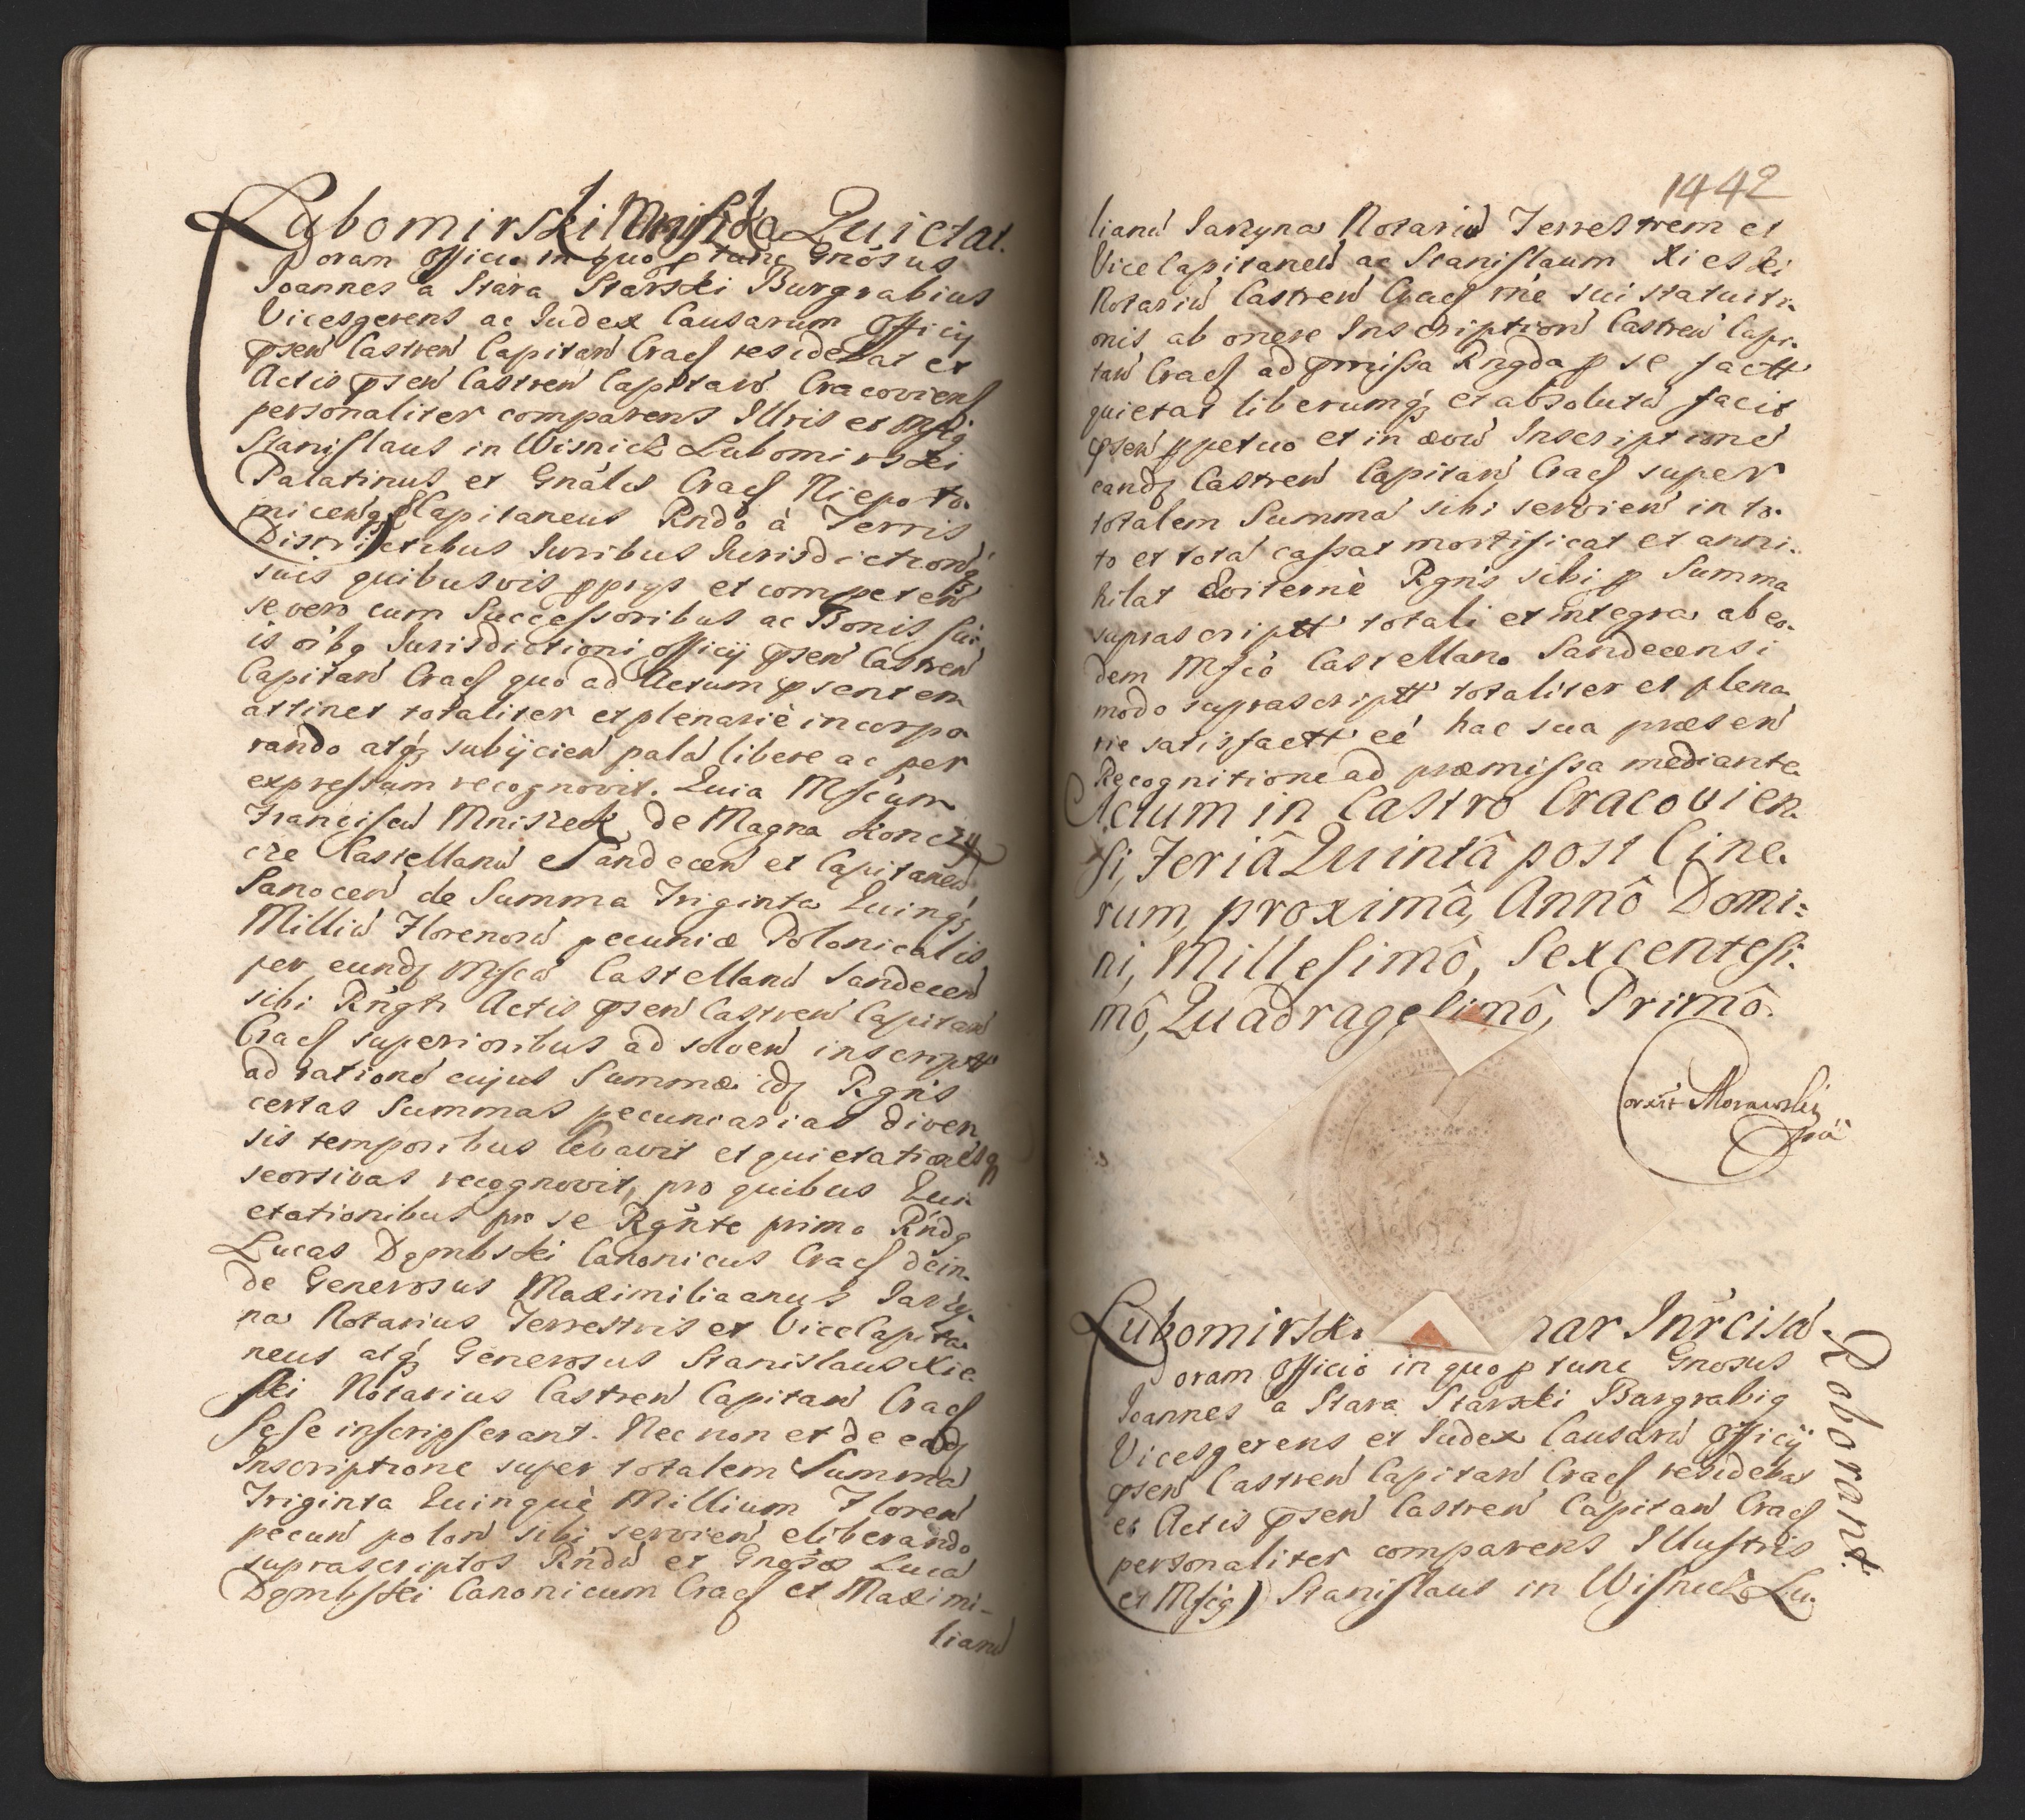 Lubomirski Mniska Quietat.
Coram Officio in quo p tunc Gnosus
Joannes a Stara Starski Burgrabius
Vicesgerens ac Iudex Causarum Officij
psen Castren Capitan Cracs residebat et
Actis psen Castren Capitan Cracoviens
personaliter comparens Illris et Mfcg
Stanislaus in Wisnicz Lubomirski
Palatinus et Gnâlis Cracs Niepoło-
micenq Capitaneus Rndo à Terris
Districtibus Iuribus Iurisdictionq
suis quibusvis pprys et competen
se vero cum Successoribus ac Bonis su-
is oibg Iurisdictioni officij psen Castren
Capitan Cracs quo ad Actum psentem
attinet totaliter et plenariè incorpo
rando atq subijcien palà libere ac per
expressum recognovit. Quia Mfcum
Franciscu Mniszek de Magna Konczy
cze Castellanu Sandecen et Capitaneu
Sanocen de Summa Triginta Quinq
Milliu Florenoru pecuniæ Polonicalis
per eundq Mfcu Castellanu Sandecen
sibi Rngti Actis psen Castren Capitan
Cracs superioribus ad solven inscriptt
ad ratione cujus Summæ idq Rgñs
certas Summas pecuniarias diver
sis temporibus levavit et quietationesq
seorsivas recognovit, pro quibus Qui-
etationibus pro se Rgñte primo Rndg
Lucas Dąmbski Canonicus Cracs dein-
de Generosus Maximilianus Jarzy-
na Notarius Terrestris et ViceCapita-
neus atq Generosus Stanislaus Xię-
ski Notarius Castren Capitan Cracs
sese inscripserant. Nec non et de eadq
Inscriptione super totalem Summa
Triginta Quinquè Millium Floren
pecun polon sibi servien eliberando
suprascriptos Rndu et Gnosos Luca
Dąmbski Canonicum Cracs et Maximi-
lianu
1442
lianu Jarzyna Notariu Terrestrem et
ViceCapitaneu ac Stanislaum Xieski
Notariu Castren Cracs rñe sui statuiti-
onis ab onere Inscription Castren Capi-
tan Cracs ad pmissa Rngda p se factt
quietat liberumq et absolutu facit
psen ppetuo et in ævu Inscriptione
eandq Castren Capitan Cracs super
totalem Summa sibi servien in to-
to et tota cassat mortificat et anni-
hilat Eviternè Rgñs sibi p Summa
suprascriptt totali et integra ab eo-
dem Mfco Castellano Sandecensi
modo suprascriptt totaliter et plena
rie satisfactt eé hac sua præsen
Recognitione ad præmissa mediante
Actum in Castro Cracovien-
si, Feriâ Quintâ post Cine-
rum, proximâ, Annô Domi:
ni, Millesimô, Sexcentesi-
mô, Quadragesimô, Primô.
Corexit Morawski
mp
Lubomirski rar Inrcisa
Roborant.
Coram Officio in quo p tunc Gnosus
Joannes a Stara Starski Burgrabig
Vicesgerens et Iudex Causaru Officij
psen Castren Capitan Cracs residebat
et Actis psen Castren Capitan Cracs
personaliter comparens Illustris
et Mfcg Stanislaus in Wisnicz Lu-